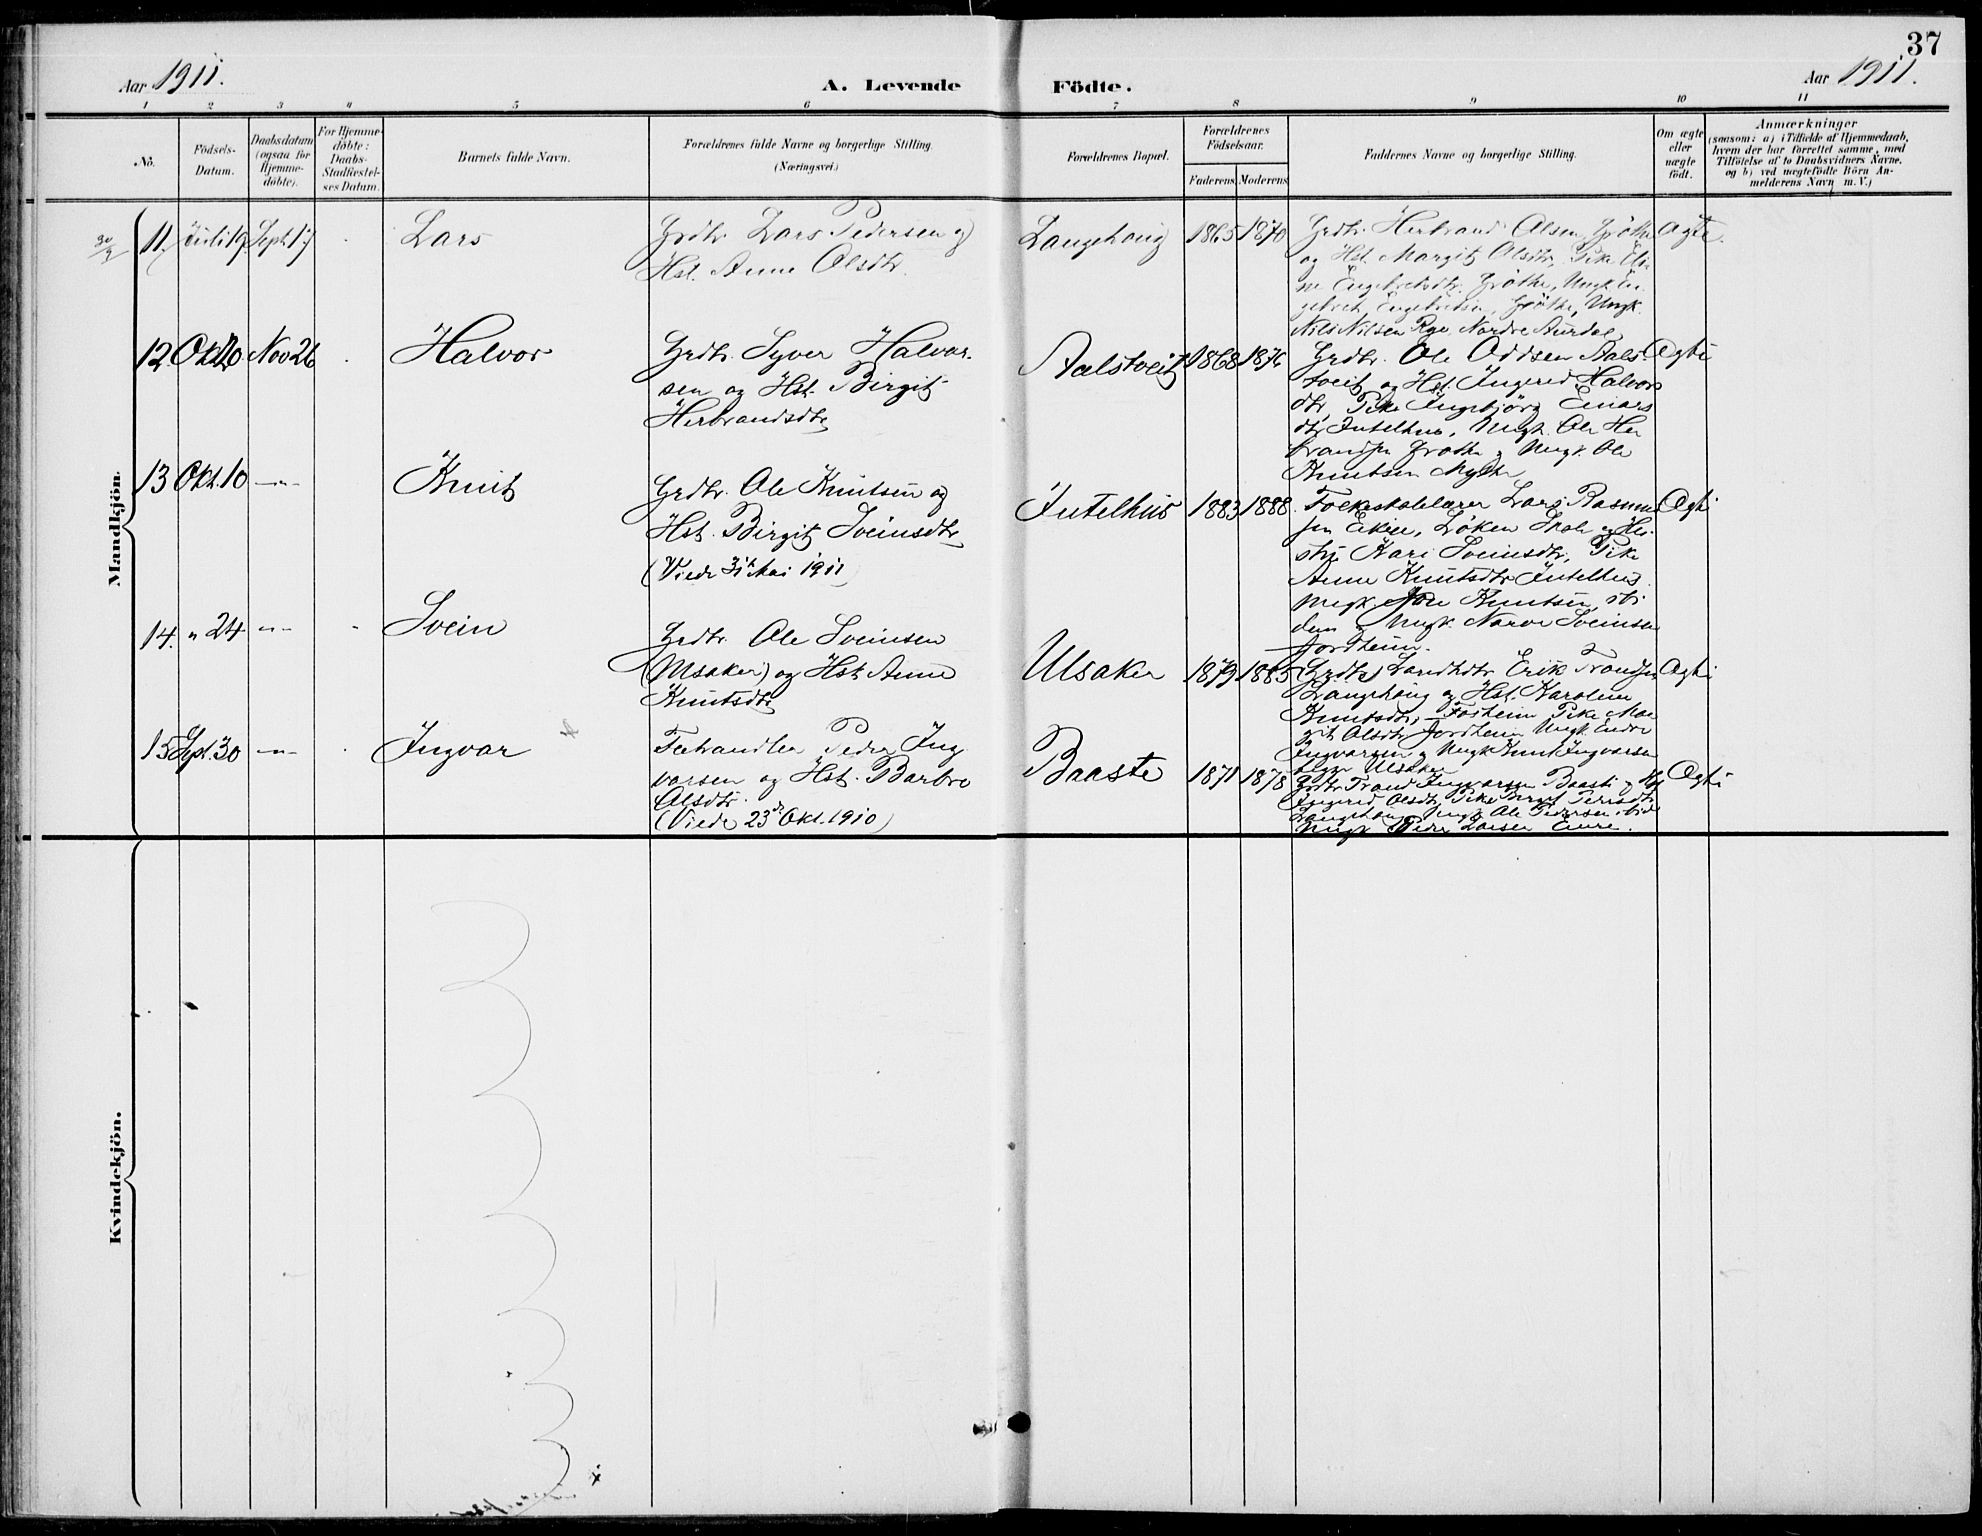 37
Aar 1911.
A. Levende Födte.
Aar 1911.
1 2 3 4 5 6 7 8 9 10 11
No.
Födsels-
Datum.
Daabsdatum
(ogsaa for
Hjemme-
döbte).
For Hjemme-
döbte:
Daabs-
Stadfæstel-
ses Datum.
Barnets fulde Navn.
Forældrenes fulde Navne og borgerlige Stilling.
(Næringsvei.)
Forældrenes Bopæl.
Forældrenes
Födselsaar.
Faderens Moderens
Faddernes Navne og borgerlige Stilling.
Om ægte
eller
uægte
födt.
Anmærkninger
(saasom: a) i Tilfælde af Hjemmedaab,
hvem der har forrettet samme, med
Tilföielse af to Daabsvidners Navne,
og b) ved uægtefödte Börn An-
melderens Navn m. V.)
Mandkjön.
11. Juli 19. Sept. 17
Lars
Grdbr. Lars Pedersen og
Hst. Anne Olsdtr.
Langehaug 1865 1870
Grdbr. Herbrand Olsen Grøthe
og Hst. Margit Olsdtr., Pike Eli-
ne Engebretsdtr. Grøthe, Ungk. En-
gebret Engebretsen, Grøthe, Ungk.
Nils Nilsen Rye Nordre Aurdal
Ægte.
12. Okt. 20 Nov 26
Halvor
Grdbr. Syver Halvor-
sen og Hst. Birgit
Herbrandsdtr
Aalstveit 1868 1876
Grdbr. Ole Oddsen Aals
tveit og Hst. Ingerid Halvors
dtr, Pike Ingebjörg Einars
dtr Intelhus, Ungk. Ole Her
brandsen Grøthe og Ungk. Ole
Knutsen Mythe
Ægte
13 Okt. 10 —"—
Knut
Grdbr. Ole Knutsen og
Hst. Birgit Sveinsdtr
(Viede 31te Mai 1911)
Intelhus 1883 1888
Folkeskolelærer Lars Rasmus
sen Eikje, Løken Skole og Hu-
stru Kari Sveinsdtr, Pike
Anne Knutsdtr Intelhus
Ungk. Knutsen, sbi
dem og Ungk. Narve Sveinsen
Jordheim.
Ægte
14. " 24 —"—
Svein
Grdbr. Ole Sveinsen
(Ulsaker) og Hst Anne
Knutsdtr
Ulsaker 1879 1885
(Grdbr) Landhdlr Erik Trondsen
Langehaug og Hst. Karoline
Knutsdtr, Jorheim Pike Mar
git Olsdtr Jordheim Ungk. Endre
Ingvarsen og Ungk Knut Ingvarsen
Ulsaker
Ægte
15 Sept. 30 —"—
Ingvar
Fæhandler Peder Ing
varsen og Hst. Barbro
Olsdtr.
(Viede 23de Okt. 1910)
Baaste 1871 1878
Grdbr Trond Ingvarsen Baaste og Hst
Ingerid Olsdtr, Pike Birgit Persdtr
Langehaug, Ungk Ole Pedersen ibid
Ungk Peder Larsen Eikre.
Ægte
Kvindekjön.